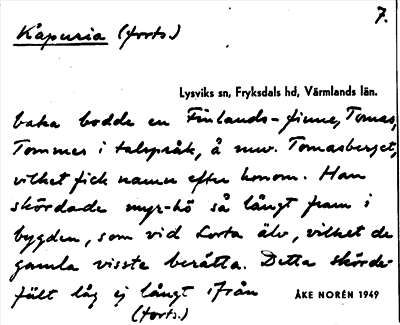 7.
Kåpuria (forts.)
Lysviks sn, Fryksdals hd, Värmlands län.
baka bodde en Finlands-finne, Tomas,
Tommes i talspråk, å nuv. Tomasberget,
vilket fick namn efter honom. Han
skördade myr-hö så långt fram i
bygden, som vid Lorta älv, vilket de
gamla visste berätta. Detta skörde-
fält låg ej långt ifrån
ÅKE NORÉN 1949
(forts.)